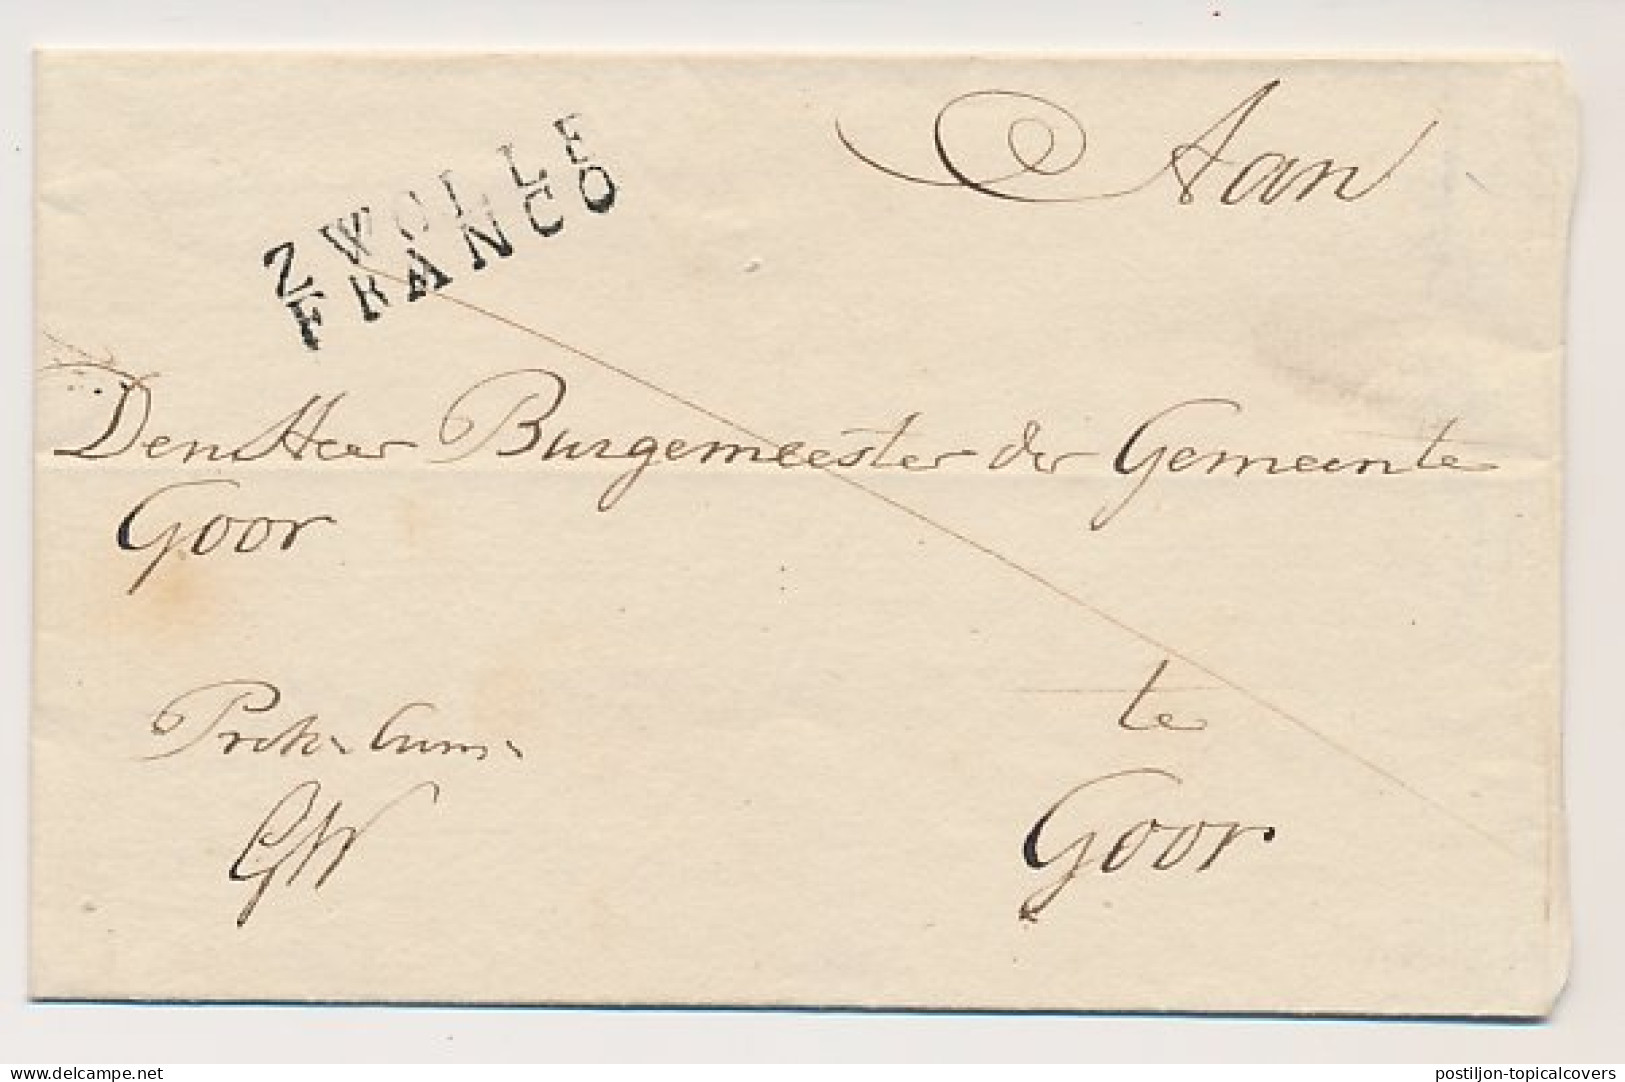 ZWOLLE
FRANCO
Aan
Den Heer Burgemeester der Gemeente
Goor
te
Goor
postiljon-topicalcovers
www.delcampe.net